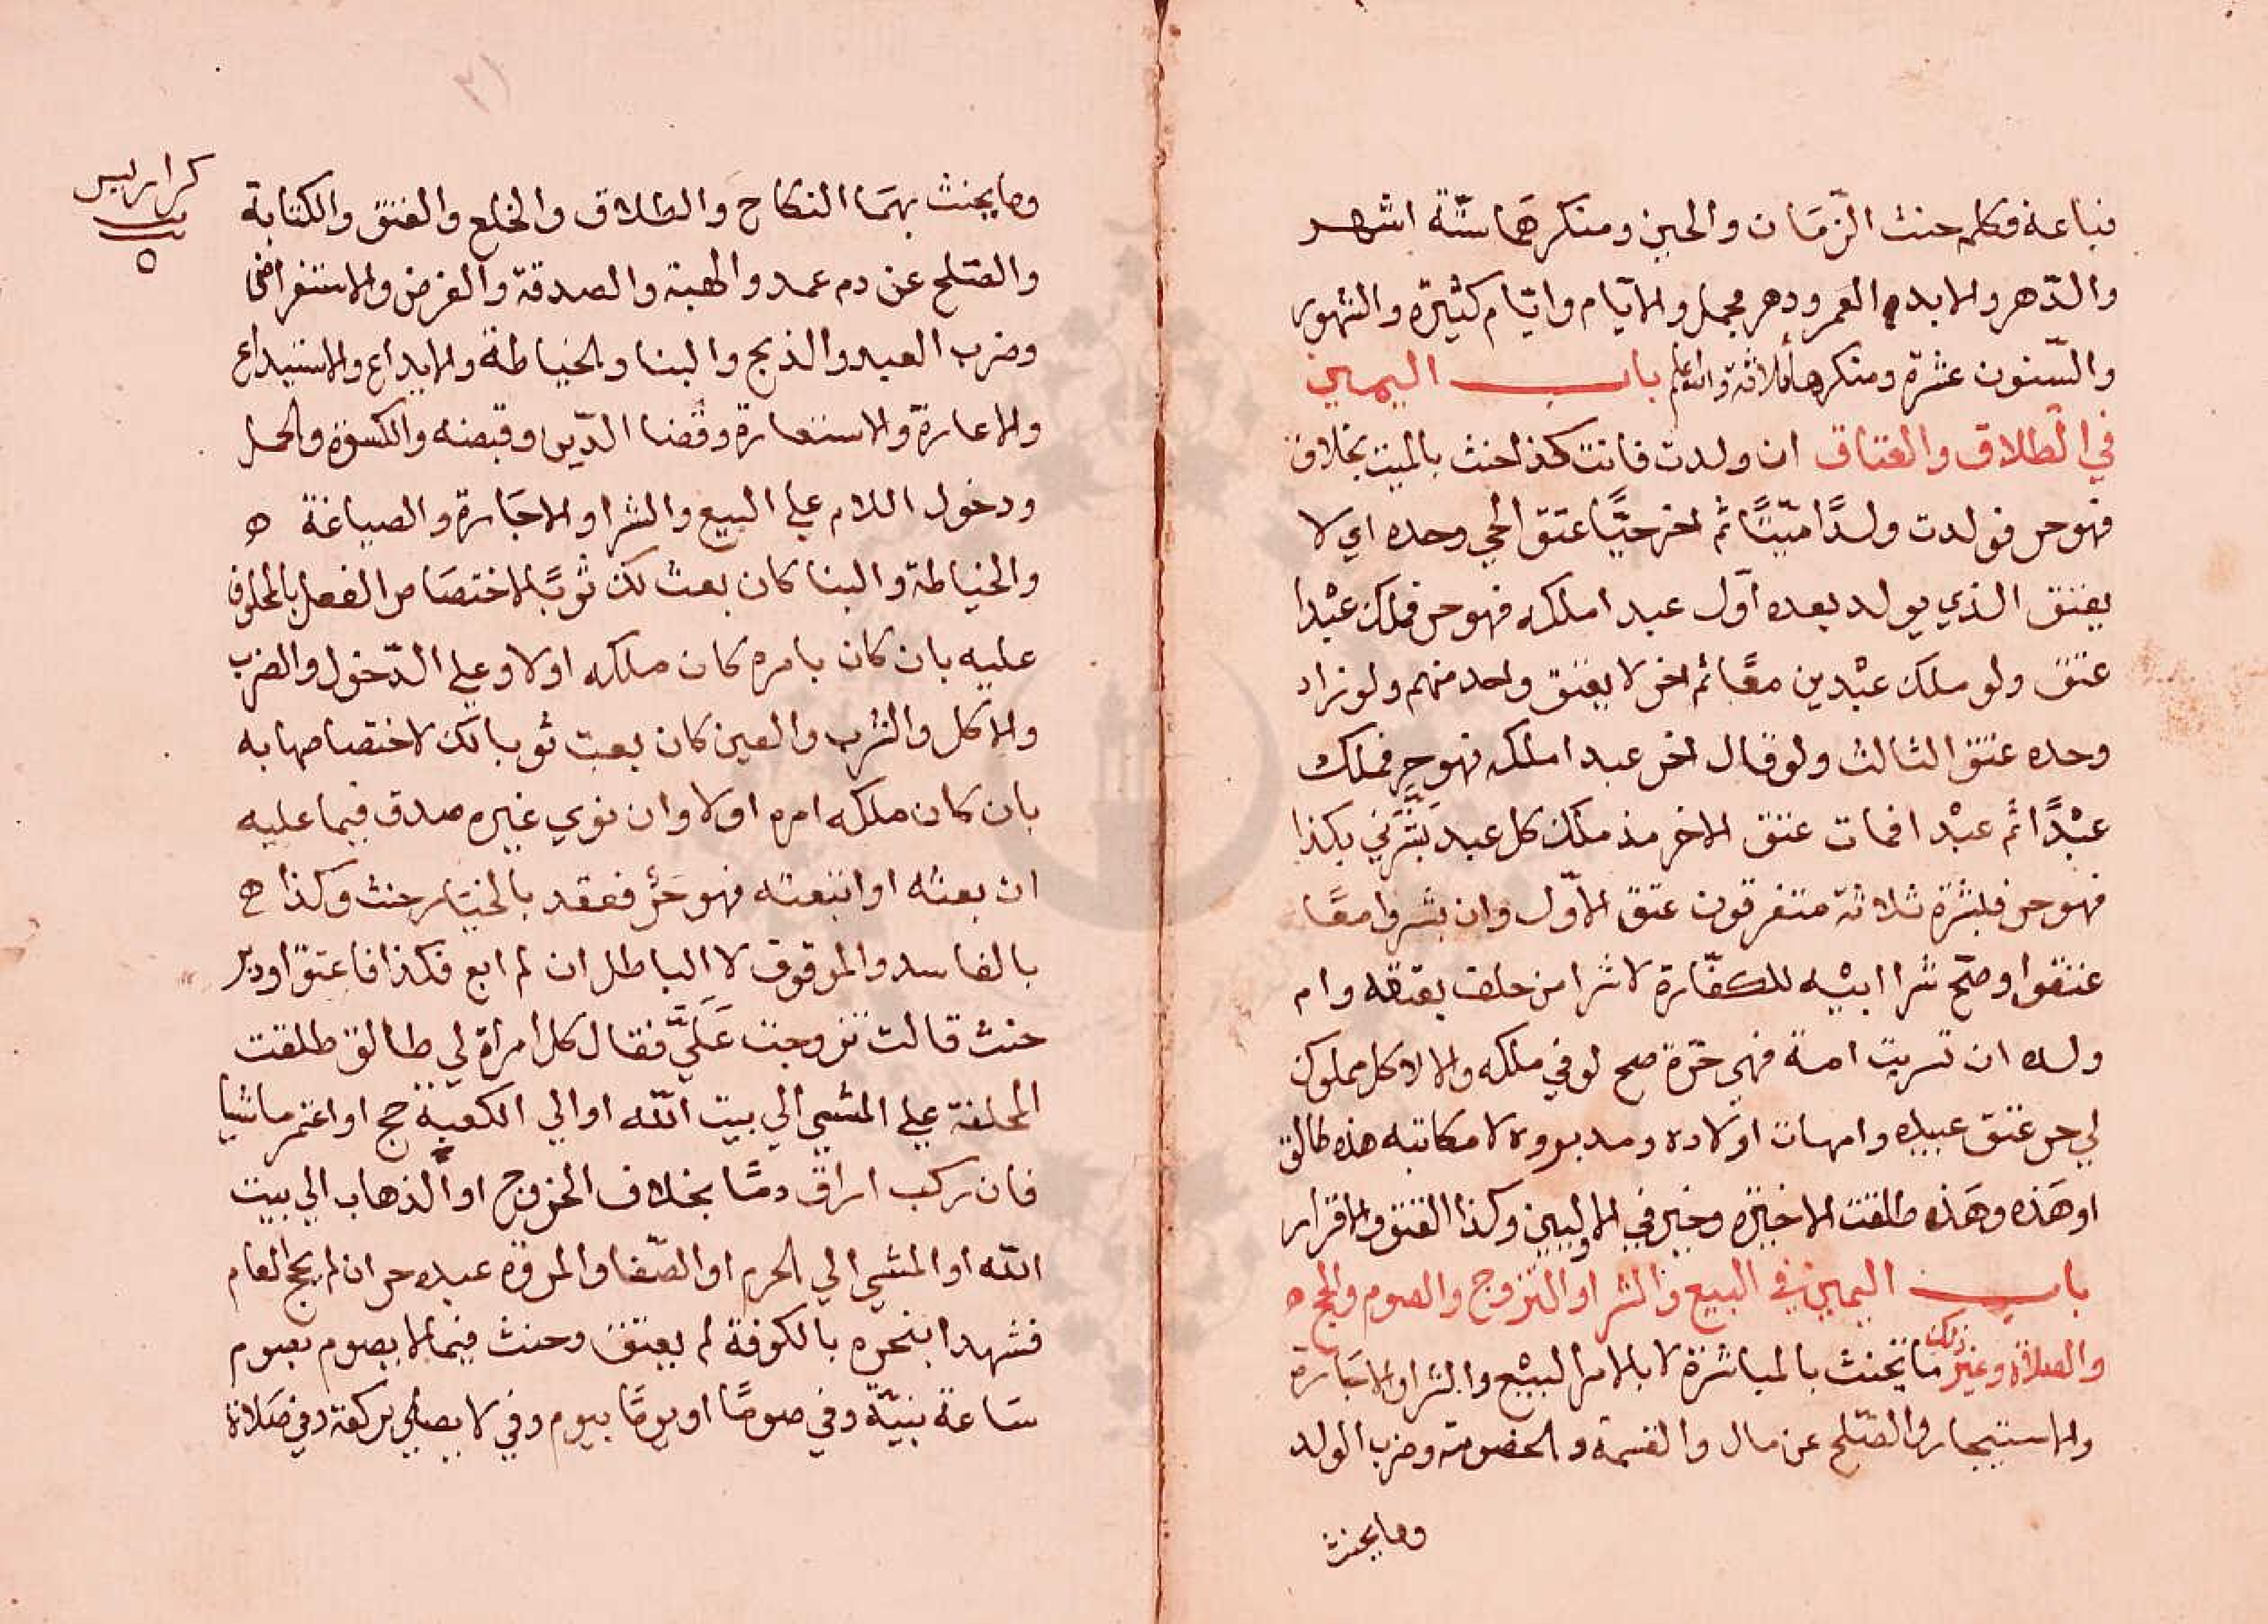 فباعه فكلمه حنث الزّمَان والحين ومنكرهَا ستّة اشهر
والدّهر والابد العمر ودهر مجمل والايّام وايّام كثيرة والشهور
والسّنون عشرة ومنكرها ثلاثة والله اعلم باب اليمين
في الطلاق والعتاق ان ولدت فانت كذا حنث بالميت بخلاف
فهو حر فولدت ولدًا ميّتًا ثم اخر حيًّا عتق الحي وحده اي لا
يعتق الذي يولد بعده اوّل عبد املكه فهو حر فملك عبْدا
عتق ولو ملك عبْدين معًا ثم اخر لا يعتق واحد منهم ولو زاد
وحده عتق الثالث ولو قال اخر عبد املكه فهو حر فملك
عبْدًا ثم عبْدا فمات عتق الاخر مذ ملك كل عبد بَشَّرَني بكذا
فهو حر فبشره ثلاثة متفرقون عتق الاوّل وان بشروا معًا
عتقوا وصحّ شرا ابيْه للكفّارة لا شرا من حلف بعتقه وام
ولده ان تسريت امة فهي حرّة صح لو في ملكه والا لا كل مملوك
لي حر عتق عبيده وامهات اولاده ومدبروه لا مكاتبه هذه طالق
او هَذه وهَذه طلقت الاخيرة وخير في الاوليين وكذا العتق والاقرار
باب اليمين في البيع والشرا والتزوج والصوم والحج ه
والصلاة وغير ذلك ما يحنث بالمباشرة لا بالامر البيْع والشرا والاجَارة
والاستيجار والصّلح عن مال والقسمة والخصومة وضرب الولد
وما يحنث
وما يحنث بهمَا النكاح والطلاق والخلع والعتق والكتابة
والصّلح عن دم عمد والهبة والصدقة والقرض والاستقراض
وضرب العبد والذبح والبنا والخياطة والايداع والاستيداع
والاعارة والاستعارة وقضا الدّين وقبضه والكسوة والحمل
ودخول اللام علي البيع والشرا والاجَارة والصياغة ه
والخياطة والبنا كان بعت لك ثوبًا لاختصَاص الفعل بالمحلوف
عليه بان كان بامره كان ملكه او لا وعلي الدّخول والضرب
والاكل والشرب والعين كان بعت ثوبا لك لاختصاصها به
بان كان ملكه امره او لا وان نوي غيره صدق فيما عليه
ان بعته او ابتعته فهو حَرٌ فعقد بالخيَار حنث وكذا ه
بالفاسد والموقوف لا الباطل ان لم ابع فكذا فاعتق او دبّر
حنث قالت تزوجت عَلَيَّ فقال كل امراة لي طالق طلقت
المحلفة علي المشي الي بيت الله او الي الكعبة حج او اعتمر ماشيا
فان ركب اراق دمًا بخلاف الخروج او الذهاب الي بيت
الله او المشي الي الحرم او الصّفا والمروة عبده حر ان لم يحج العام
فشهدا بنحره بالكوفة لم يعتق وحنث فيما لا يصوم بصوم
سَاعة بنيّة وفي صومًا او يومًا بيوم وفي لا يصلي بركعة وفي صَلاة
كراريس
٥